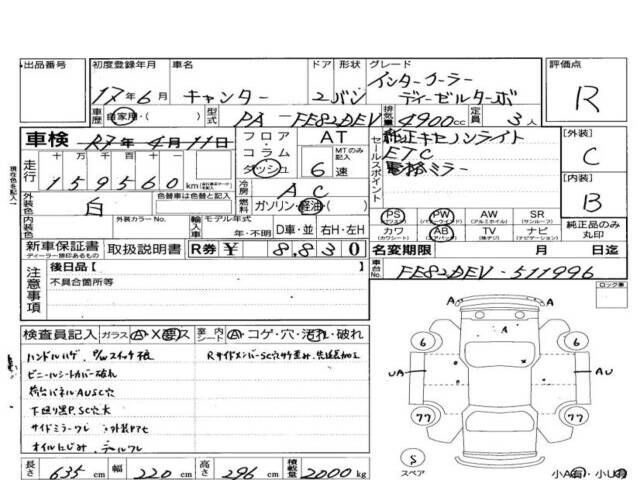 出品番号 初度登録年月 車名 ドア 形状 グレード 評価点
17年6月 キャンター 2 バン インタークーラー ディーゼルターボ R
車歴 自家用・( ) 型式 PA-FE82DEV 排気量 4900cc 定員 3人
車検 R7年4月11日 フロア・コラム・ダッシュ AT MTのみ記入 6速
セールスポイント 純正キセノンライト
ETC
電格ミラー
[外装] C
[内装] B
走行 十万 万 千 百 十 一
159560km
冷房 AC
外装色 白 色替車は色替と記入 燃料 ガソリン・軽油・( )
内装色 外装カラーNo. 輸入車 モデル年式 年・不明 D車・並 右H・左H
PS PW AW SR
(パワーウインド) (アルミホイル) (サンルーフ)
カワ AB TV ナビ
(カワシート) (エアバック) (テレビ) (ナビゲーション)
純正品のみ丸印
新車保証書 取扱説明書 R券 ¥ 8,830
ディーラー捺印あるもの
名変期限 月 日迄
車台No. FE82DEV-511996
注意事項 後日品[ ]
不具合箇所等
ロック車
検査員記入 ガラス A・X・要・ス 室内 シート A・コゲ・穴・汚れ・破れ
ハンドルハゲ P/Wスイッチ
ビニールシートカバー破れ
荷台パネルAUSC穴
下廻り黒P.SC穴大
サイドミラーワレ
オイルにじみ
RサイドメンバーSC穴
A A A
6 6
UA AU
77 77
S
スペア
小A有・小U有
長さ 635cm 幅 220cm 高さ 296cm 積載量 2000kg